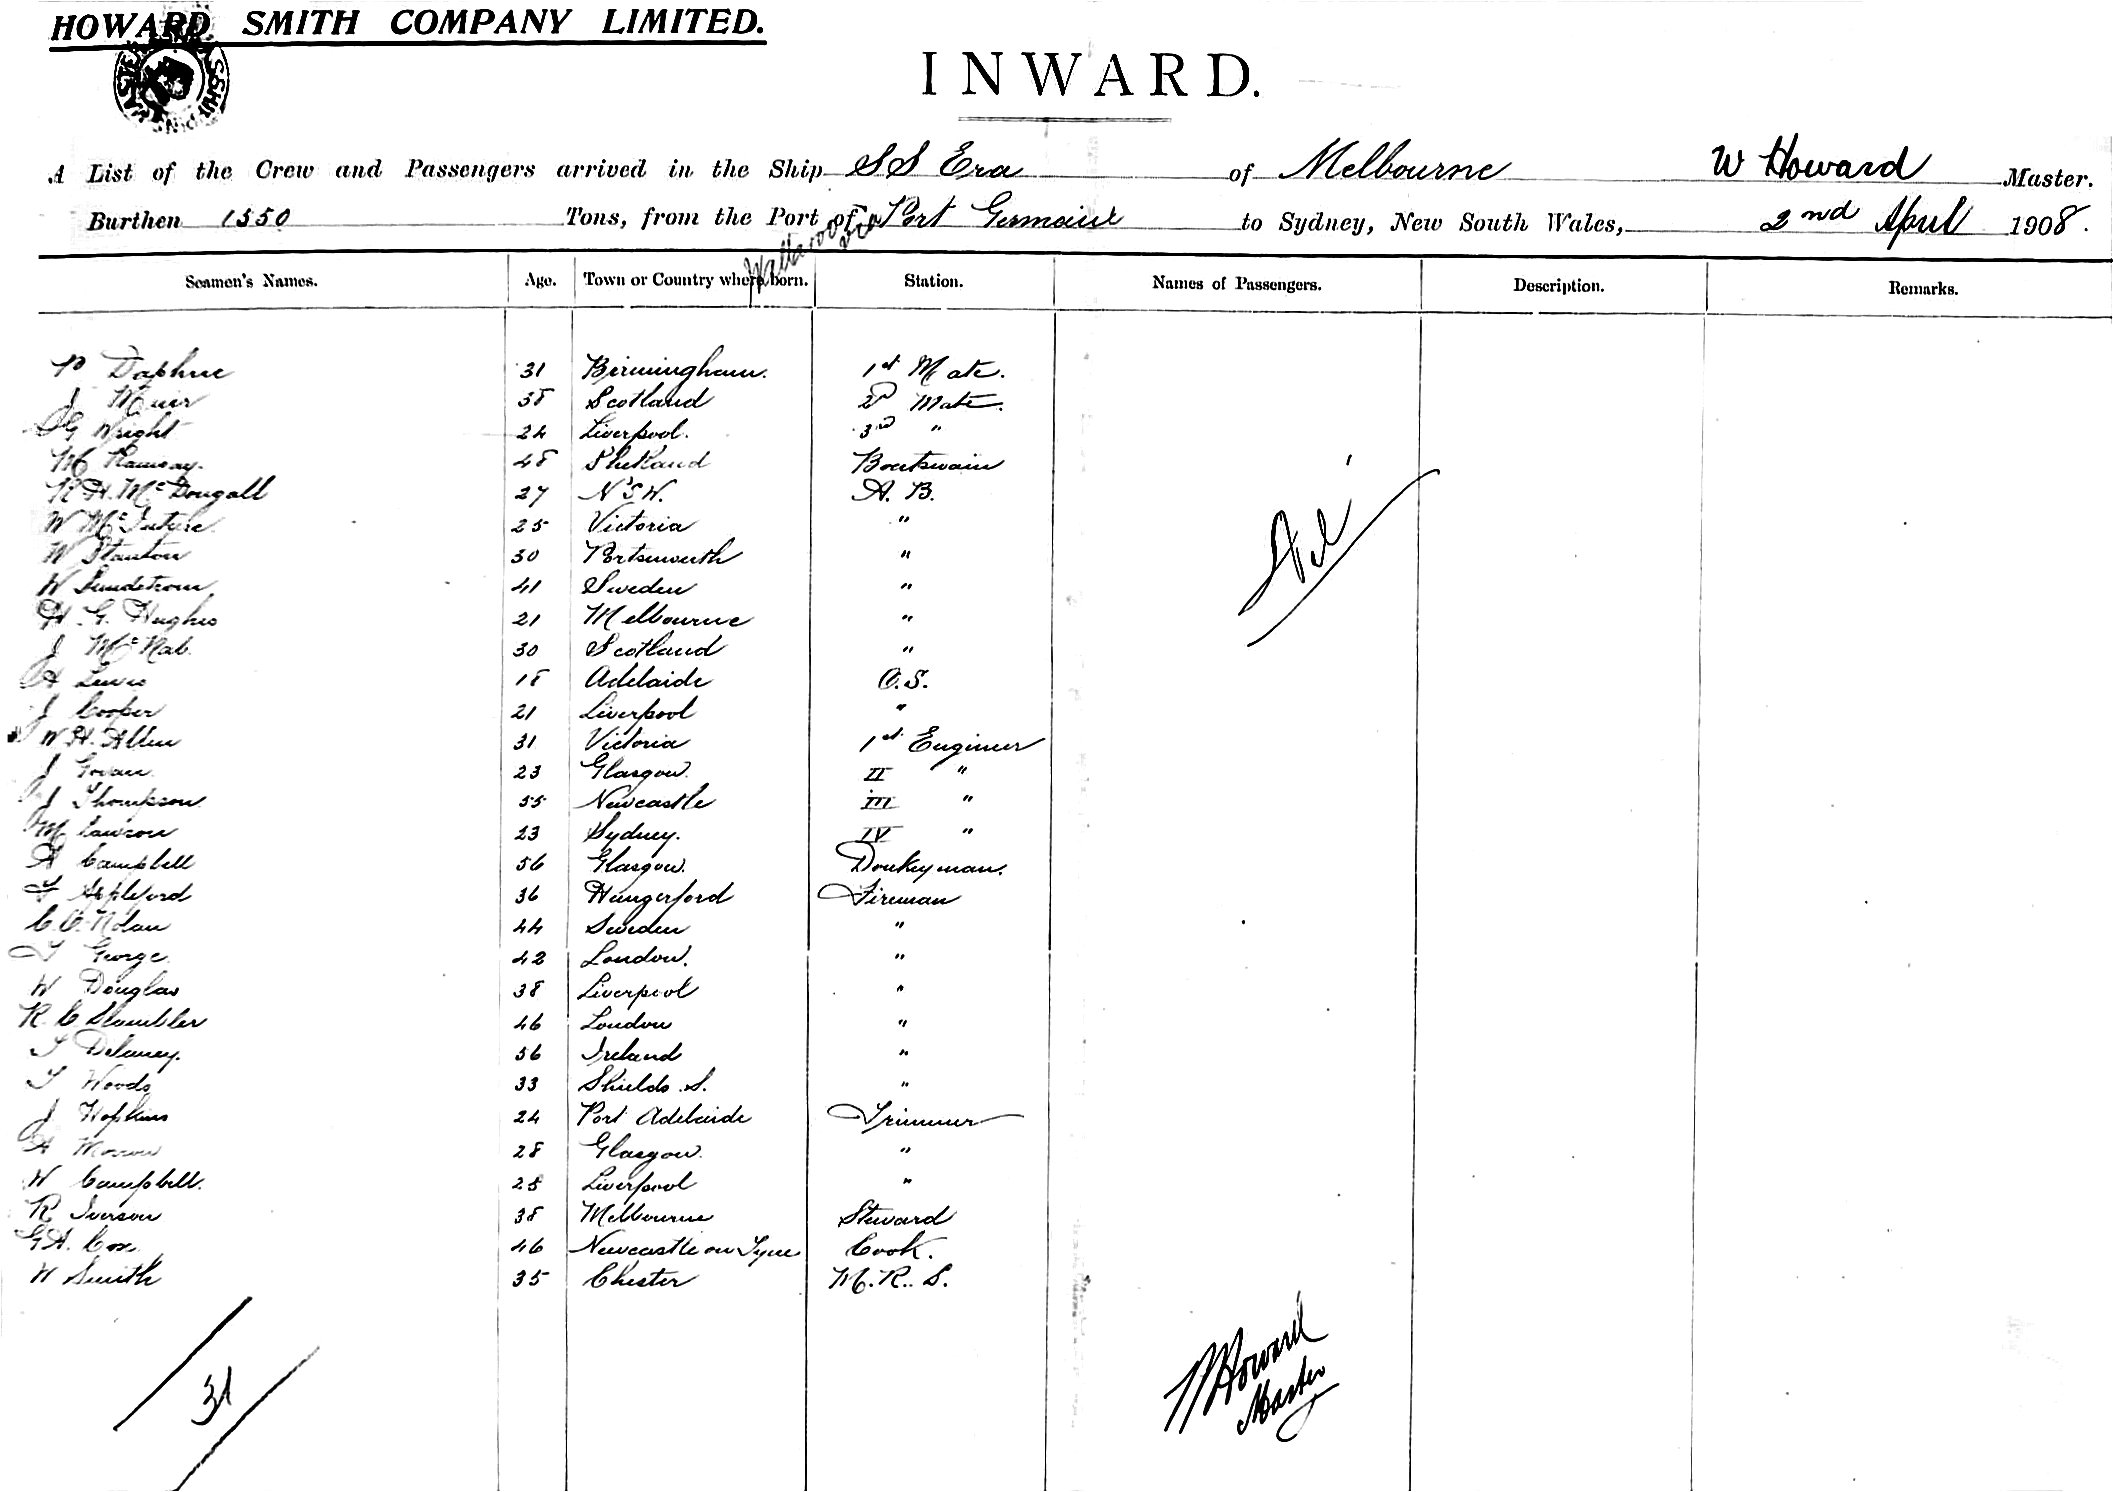 HOWARD SMITH COMPANY LIMITED.
INWARD.
A List of the Crew and Passengers arrived in the Ship SS Era of Melbourne W Howard Master.
Burthen 1550 Tons, from the Port of Port Germaine to Sydney, New South Wales, 2nd April 1908.
via Wallaroo
Seamen's Names. Age. Town or Country where born. Station. Names of Passengers. Description. Remarks.
P Daphne 31 Birmingham. 1st Mate.
J Muir 38 Scotland 2d Mate.
G Wright 24 Liverpool. 3rd "
M Ramsay. 48 Shetland Boatswain
R H. McDougall 27 N'S W. A. B.
W McIntyre 25 Victoria "
W Stanton 30 Portsmouth "
W Sundstrom 41 Sweden "
H. G. Hughes 21 Melbourne "
J McNab. 30 Scotland "
A Lewis 18 Adelaide O.S.
J Cooper 21 Liverpool "
W H. Allen 31 Victoria 1st Engineer
J Govan. 23 Glasgow. II "
J Thompson 55 Newcastle III "
M Lawson 23 Sydney. IV "
A Campbell 56 Glasgow. Donkeyman.
F Appleford 36 Hungerford Fireman
C. O. Nolan 44 Sweden "
T George. 42 London. "
W Douglas 38 Liverpool "
R. C 46 London "
T Delaney. 56 Ireland "
T Woods 33 Shields. S. "
J Hopkins 24 Port Adelaide Trimmer
A Morrow 28 Glasgow. "
W Campbell. 28 Liverpool "
R Iverson 38 Melbourne Steward
G A. Cox. 46 Newcastle on Tyne Cook.
W Smith 35 Chester M. R. S.
Nil
31
W Howard
Master